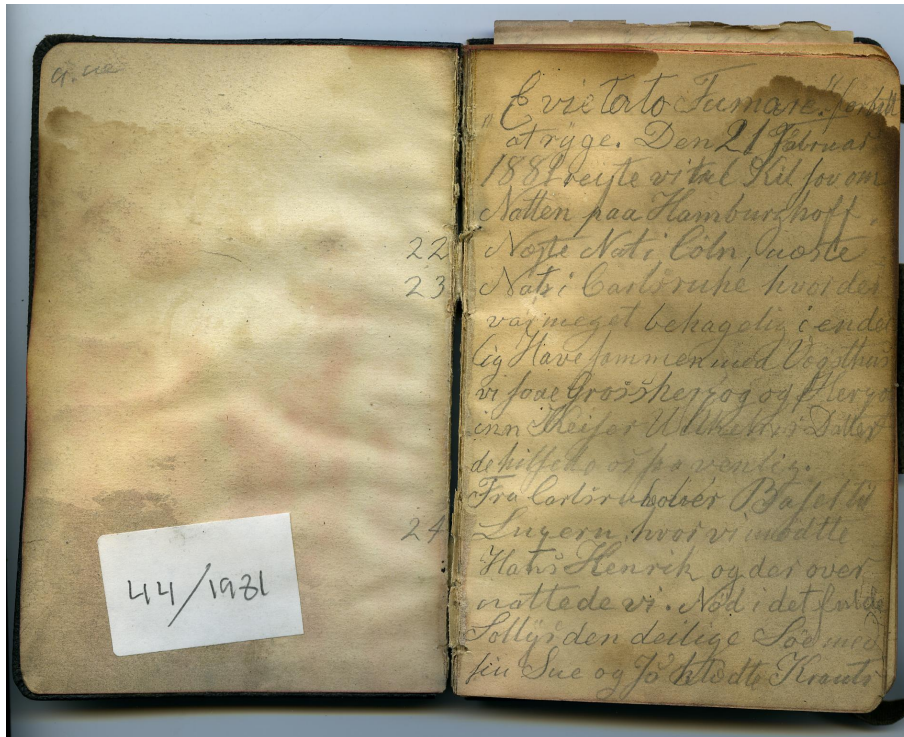 "E vietato Fumare." forbudt
at ryge. Den 21 Februar
1881 rejste vi til Kil sov om
Natten paa Hamburghoff.
22 Næste Nat i Cöln, næste
23 Nat i Carlsruhe hvor der
var meget behagelig i
lig Have sammen med
vi saae Grossherzog og
inn Keiser Wilhelms Datter
de hilsede os så venlig.
Fra Carlsruhe over Basel til
24 Luzern, hvor vi mödtte
Hans Henrik og der over
nattede vi. Nöd i det
Sollys den deilige Söe med
sin Sne og Krants
44/1981